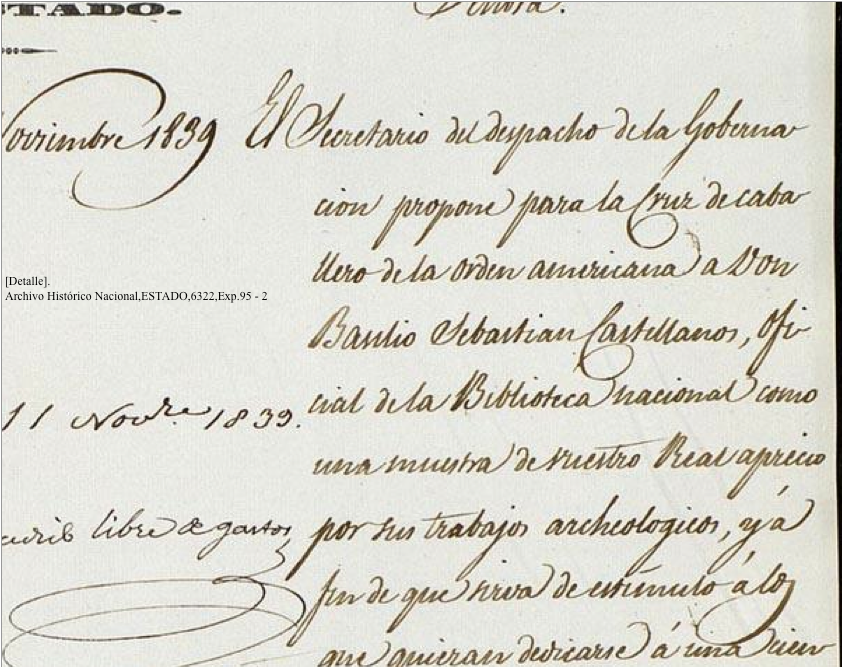 STADO.
Señora.
Noviembre 1839
El Secretario del despacho de la Goberna
cion propone para la Cruz de caba
llero de la orden americana a Don
[Detalle].
Archivo Histórico Nacional,ESTADO,6322,Exp.95 - 2
Basilio Sebastian Castellanos, Ofi
cial de la Biblioteca nacional como
11 Novre 1839.
una muestra de vuestro Real aprecio
por sus trabajos archeologicos, y á
libre de gastos
fin de que sirva de estímulo á los
que quieran dedicarse á una cien